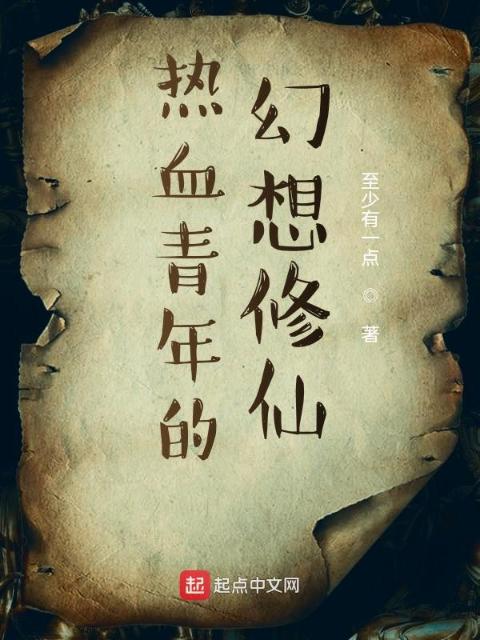 热血青年的
幻想修仙
至少有一点 ◎ 著
起 起点中文网